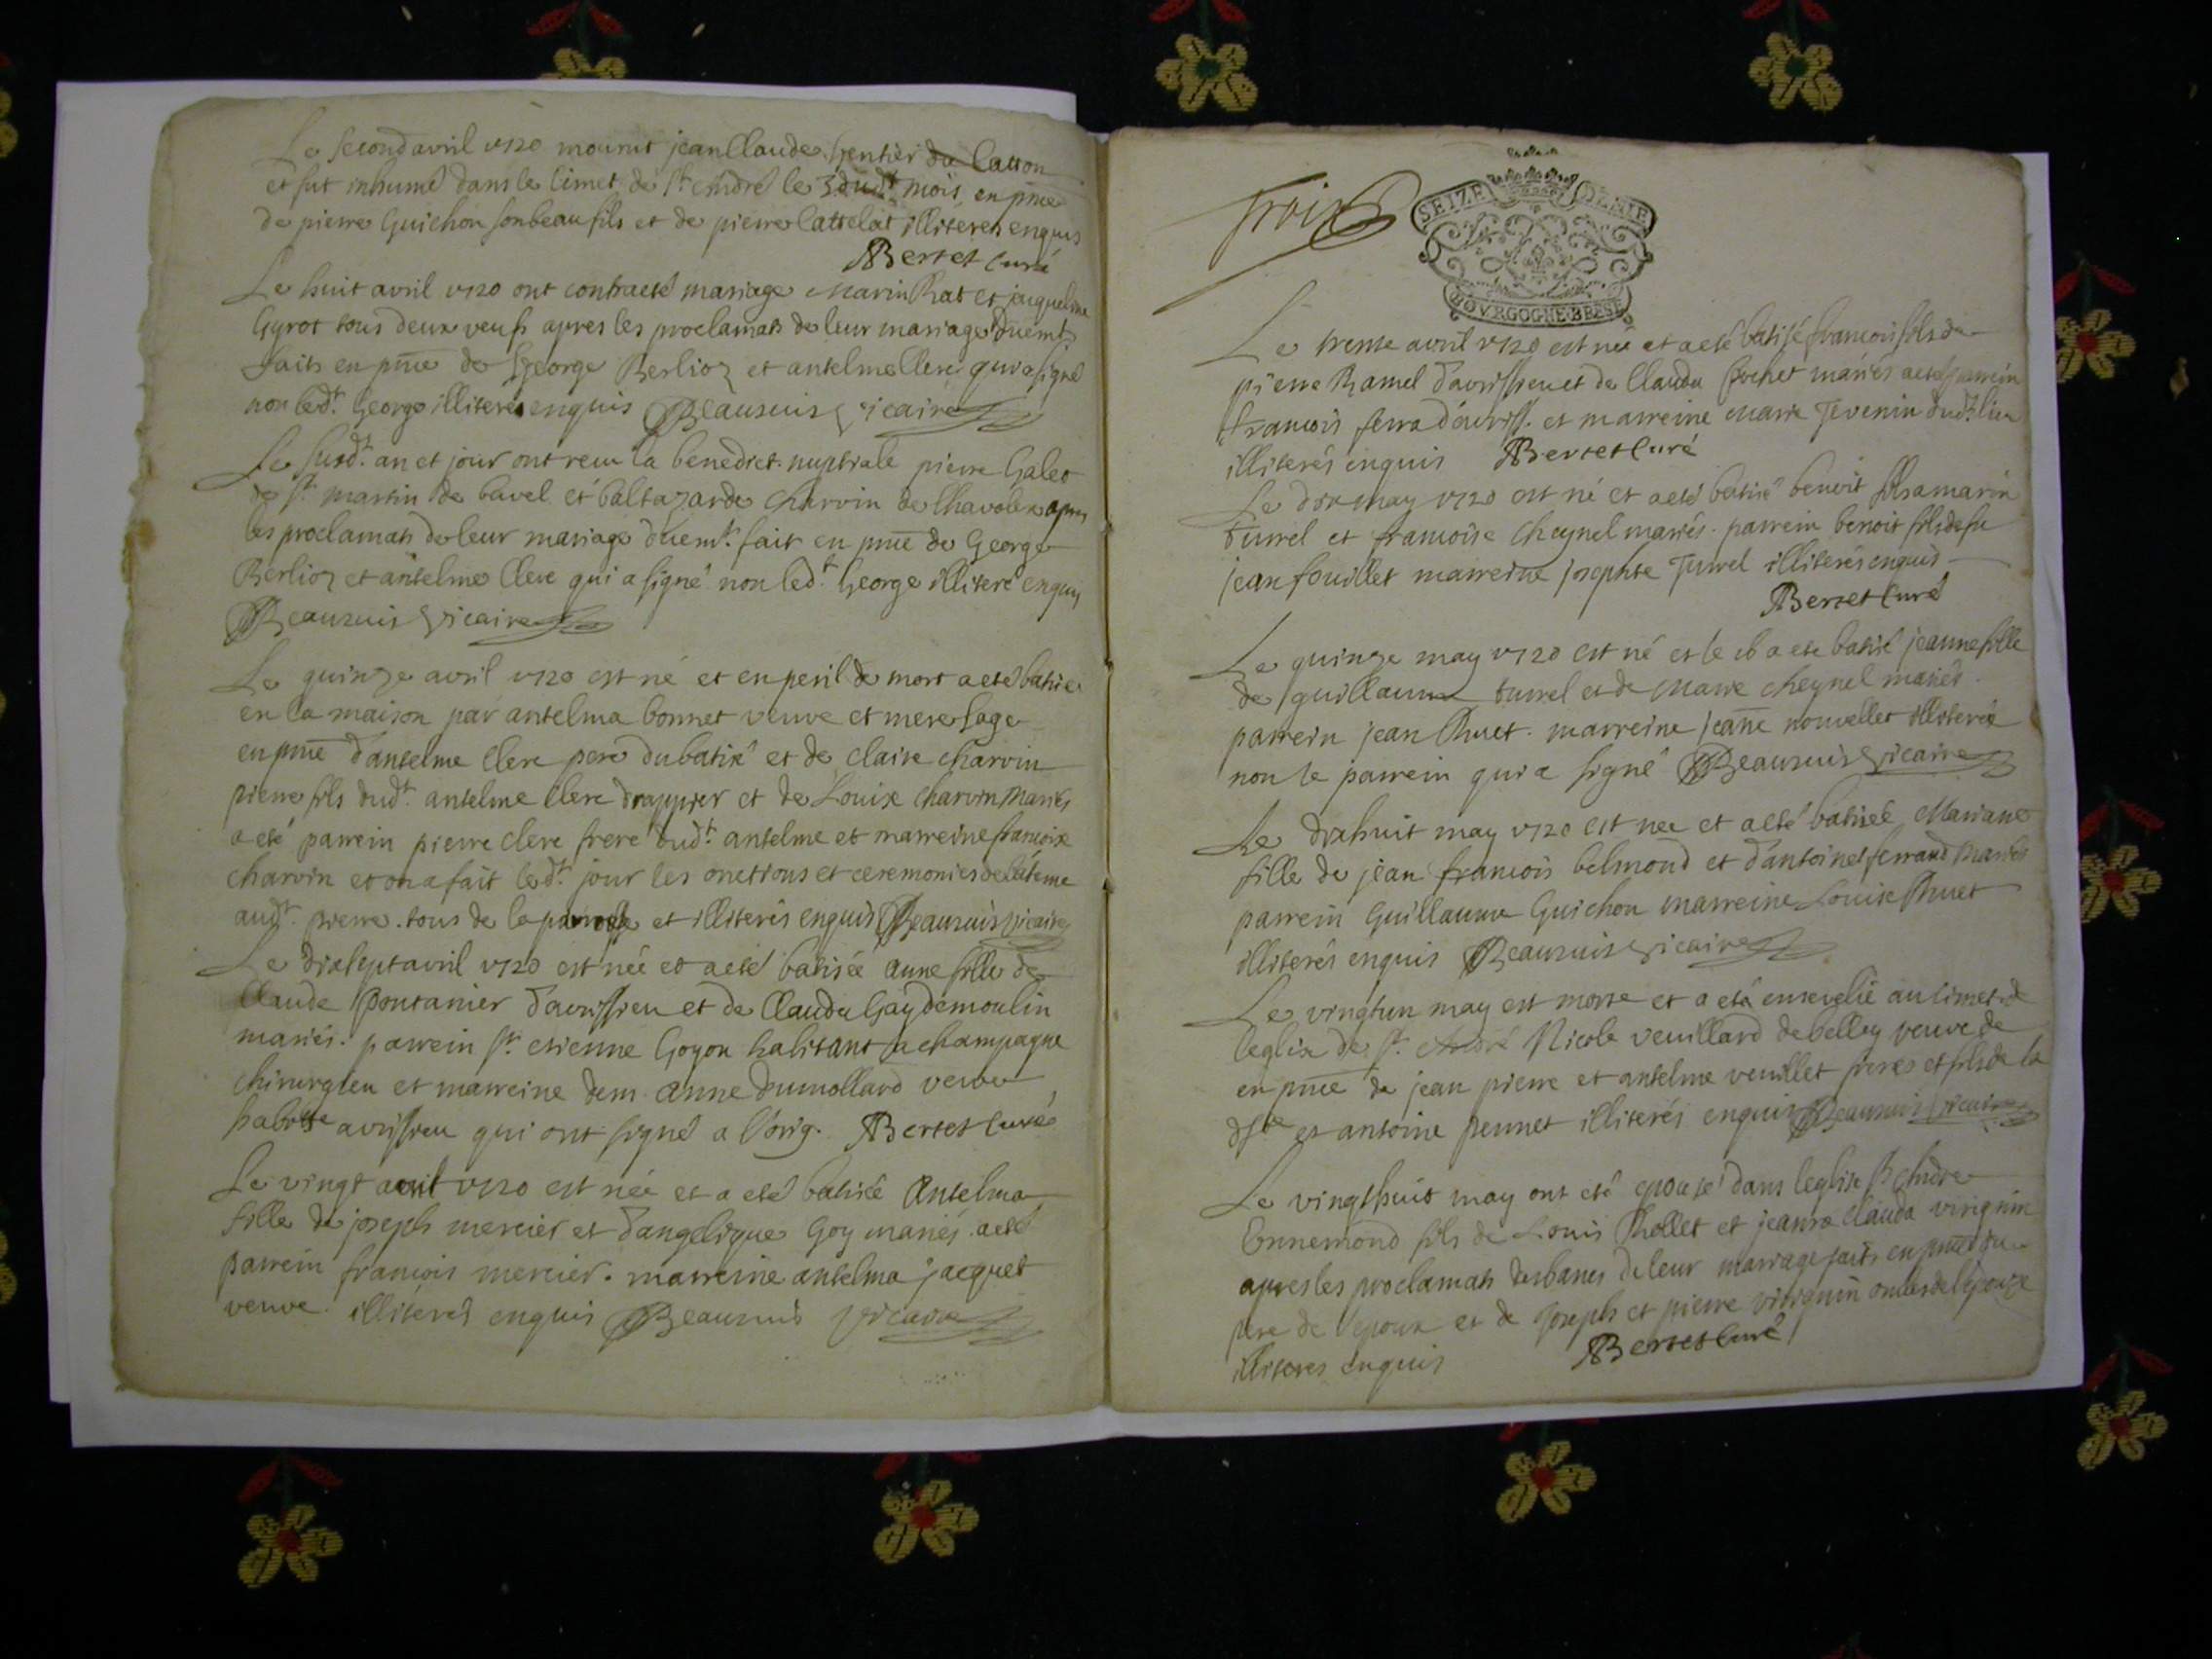 Le second avril 1720 mourut jean Claude Gentier du Catton
et fut inhumé dans le cimet. de St. André le 3 dudt. mois, en pnce
de pierre Guichon son beau fils et de pierre Cattelat illiteres enquis
Bertet Curé
Le huit avril 1720 ont contracté mariage Marin Rat et jacqueline
Gyrot tous deux veufs apres les proclamats de leur mariage duemt
faits en pnce de George Berlioz et antelme Clerc qui a signé
non ledt. George illiteré enquis Beausuis vicaire
Le susdt. an et jour ont receu la benedict. nuptiale pierre Galet
de St. martin de bavel et baltazarde Charvin de Chavolex apres
les proclamats de leur mariage duemt. fait en pnce de George
Berlioz et antelme Clerc qui a signé non ledt. George illiteré enquis
Beausuis vicaire
Le quinze avril 1720 est né et en peril de mort a eté batisé
en la maison par antelma bonnet veuve et mere sage
en pnce d'antelme Clerc pere du batisé et de claire charvin
pierre fils dudt. antelme Clerc drappier et de Louise charvin mariés
a eté parrein pierre clerc frere dudt. antelme et marreine francoise
charvin et on a fait ledt. jour les onctions et ceremonies de
audt. pierre. tous de la paroisse et illiterés enquis Beausuis vicaire
Le dixsept avril 1720 est née et a eté batisée anne fille de
Claude Pontanier d'avrissieu et de Clauda Gaydemoulin
mariés. parrein Sr. etienne Goyon habitant a champagne
chirurgien et marreine dem. anne dumollard veuve
avrissieu qui ont signé a l'orig. Bertet Curé
Le vingt avril 1720 est née et a eté batisée Antelma
fille de joseph mercier et d'angelique Goy mariés. a eté
parrein francois mercier. marreine antelma jacquet
veuve. illiterés enquis Beausuis vicaire
Trois
SEIZE DENIE
BOVRGOGNE BRESSE
Le trente avril 1720 est né et a eté batisé francois fils de
pierre Ramel d'avrissieu et de Clauda Cochet mariés a eté parrein
francois ferra d'avriss. et marreine Marie Tevenin dudt. lieu
illiterés enquis Bertet Curé
Le dix may 1720 est né et a eté batisé benoit fils a marin
Turrel et francoise Cheynel mariés. parrein benoit fils de fu
jean fouillet marreine josephte Turrel illiterés enquis
Bertet Curé
Le quinze may 1720 est né et le 16 a ete batisé jeanne fille
de guillaume turrel et de Marie cheynel mariés.
parrein jean Thuet. marreine jeanne nouvellet illiterée
non le parrein qui a signé Beausuis vicaire
Le dixhuit may 1720 est née et a eté batisée Mariane
fille de jean francois belmond et d'antoinet ferrand mariés
parrein Guillaume Guichon marreine Louise Thuet
illiterés enquis Beausuis vicaire
Le vingtun may est morte et a eté ensevelie au cimet. de
leglise de St. André Nicole venillard de belley veuve de
en pnce de jean pierre et antelme venillet freres et fils de la
dfte et antoine pennet illiterés enquis Beausuis vicaire
Le vingthuit may ont eté epousé dans leglise St. Andre
Ennemond fils de Louis Thollet et jeanne clauda virignin
apres les proclamats desbancs de leur mariage faits en pnce du
pere de l'epoux et de joseph et pierre virignin oncles de l'epouze
illiteres enquis Bertet Curé